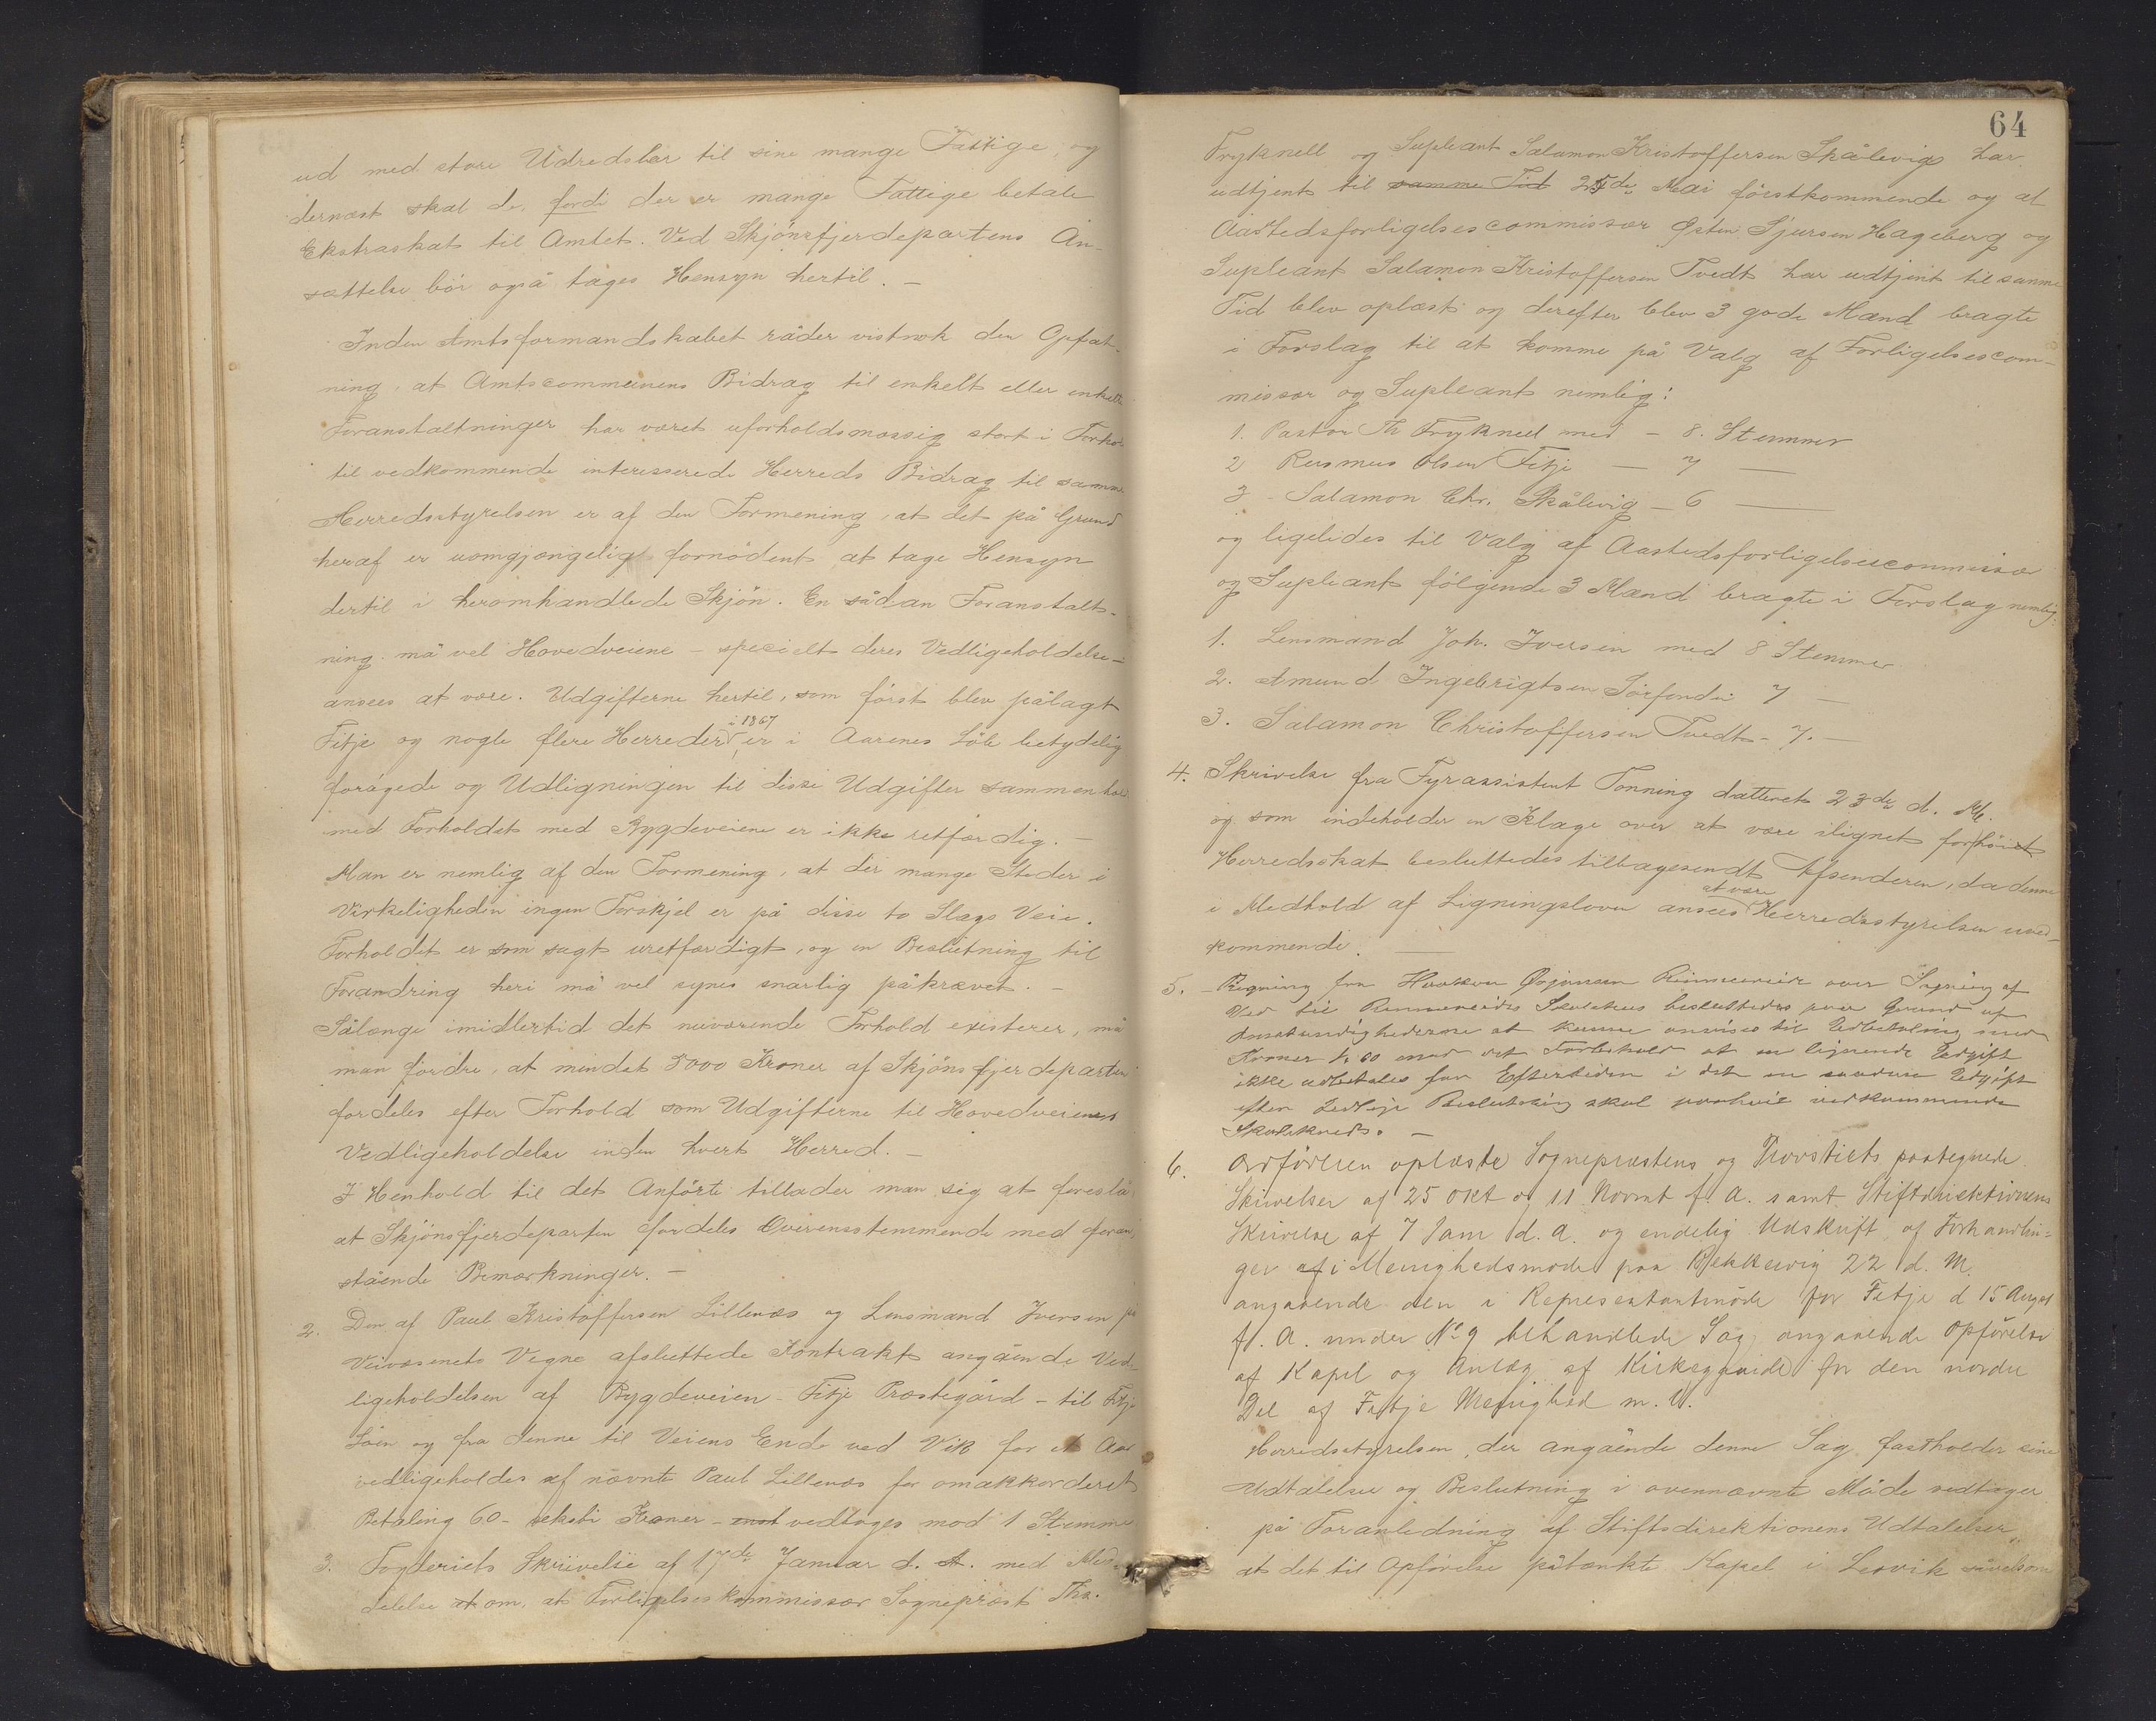 ud med store Udredsler til sine mange Fattige, og
dernæst skal de, fordi der er mange Fattige betale
Ekstraskat til Amtet. Ved Skjönsfjerdepartens An-
sættelse bör også tages Hensyn hertil. —
Inden Amtsformandskabet råder vistnok den Opfat-
ning, at Amtscommunens Bidrag til enkelt eller enkelte
Foranstaltninger har været uforholdsmæssig stort i Forhold
til vedkommende interesserede Herreds Bidrag til samme.
Herredsstyrelsen er af den Formening, at det på Grund
heraf er uomgjængeligt fornödent at tage Hensyn
dertil i heromhandlede Skjön. En sådan Foranstalt-
ning må vel Hovedveiene – specielt deres Vedligeholdelse –
ansees at være. Udgifterne hertil, som först blev pålagt
Fitje og nogle flere Herreder i 1867, er i Aarenes Löb betydelig
forögede og Udligningen til disse Udgifter sammenhold
med Forholdet med Bygdeveiene er ikke retfærdig. —
Man er nemlig af den Formening, at der mange Steder i
Virkeligheden ingen Forskjel er på disse to Slags Veie.
Forholdet er som sagt uretfærdigt, og en Beslutning til
Forandring heri må vel synes snarlig påkrævet. —
Sålænge imidlertid det nuværende Forhold existerer, må
man fordre, at mindst 5000 Kroner af Skjönsfjerdeparten
fordeles efter Forhold som Udgifterne til Hovedveienes
Vedligeholdelse inden hvert Herred. —
I Henhold til det Anförte tillader man sig at foreslå
at Skjönsfjerdeparten fordeles Overensstemmende med foran-
stående Bemærkninger. —
2. Den af Paul Kristoffersen Lillenæs og Lensmand Iversen på
Veivæsenets Vegne afsluttede Kontrakt angående Ved-
ligeholdelsen af Bygdeveien – Fitje Præstegård – til Fitje
Söen og fra denne til Veiens Ende ved Vik for et Aar
vedligeholdes af nævnte Paul Lillenæs for omakkorderet
Betaling 60 – seksti Kroner – vedtoges mod 1 Stemme
3. Fogderiets Skrivelse af 17de Januar d. A. med Med-
delelse at om, at Forligelseskommissær Sognepræst Ths.
64
Fryknell og Supleant Salamon Kristoffersen Skålevig har
udtjent til samme Tid 25de Mai förstkommende og at
Aastedsforligelsescommissær Østen Sjursen Hageberg og
Supleant Salamon Kristoffersen Tvedt har udtjent til samme
Tid blev oplæst og derefter blev 3 gode Mænd bragte
i Forslag til at komme på Valg af Forligelsescom-
missær og Supleant nemlig:
1. Pastor Th Fryknell med – 8. Stemmer
2 Rasmus Olsen Fitje — 7 —
3 – Salamon Chr. Skålevig – 6 —
og ligeledes til Valg af Aastedsforligelsescommissær
og Supleant fölgende 3 Mænd bragte i Forslag nemlig:
1. Lensmand Joh. Iversen med 8 Stemmer
2. Amund Ingebrigtsen 7 —
3. Salamon Christoffersen Tvedt – 7. —
4. Skrivelse fra Fyrassistent Tonning datteret 23de d. M.
og som indeholder en Klage over at være ilignet for höi
Herredsskat besluttedes tilbagesendt Afsenderen, da denne
i Medhold af Ligningsloven ansees at være Herredsstyrelsen uved-
kommende. —
5. Regning fra Haakon Rimmereide over Sagning af
Ved til Rimmereides Skolehus besluttedes paa Grund af
Omstændighederne at kunne anvises til Udbetaling med
Kroner 1,60 med det Forbehold at en lignende Udgift
ikke udbetales for Eftertiden i det en saadan Udgift
efter Beslutning skal paahvile vedkommende
Skolekreds. —
6. Ordföreren oplæste Sognepræstens og Provstiets paategnede
Skrivelser af 25 Okt og 11 Novmt f. A. samt Stiftsdirektionens
Skrivelse af 7 Jam d. A. og endelig Udskrift af Forhandlin-
ger af i Menighedsmöde paa Bekkervig 22 d. M.
angaaende den i Representantmöde for Fitje d 15 August
f. A. under No 9 behandlede Sag angaaende Opförelse
af Kapel og Anlæg af Kirkegaarde for den nordre
Del af Fitje Menighed m. V.
Herredsstyrelsen, der angående denne Sag fastholder sine
Udtalelser og Beslutning i ovennævnte Möde vedtager
på Foranledning af Stiftsdirektionens Udtalelser,
at det til Opförelse påtænkte Kapel i Lervik såvelsom